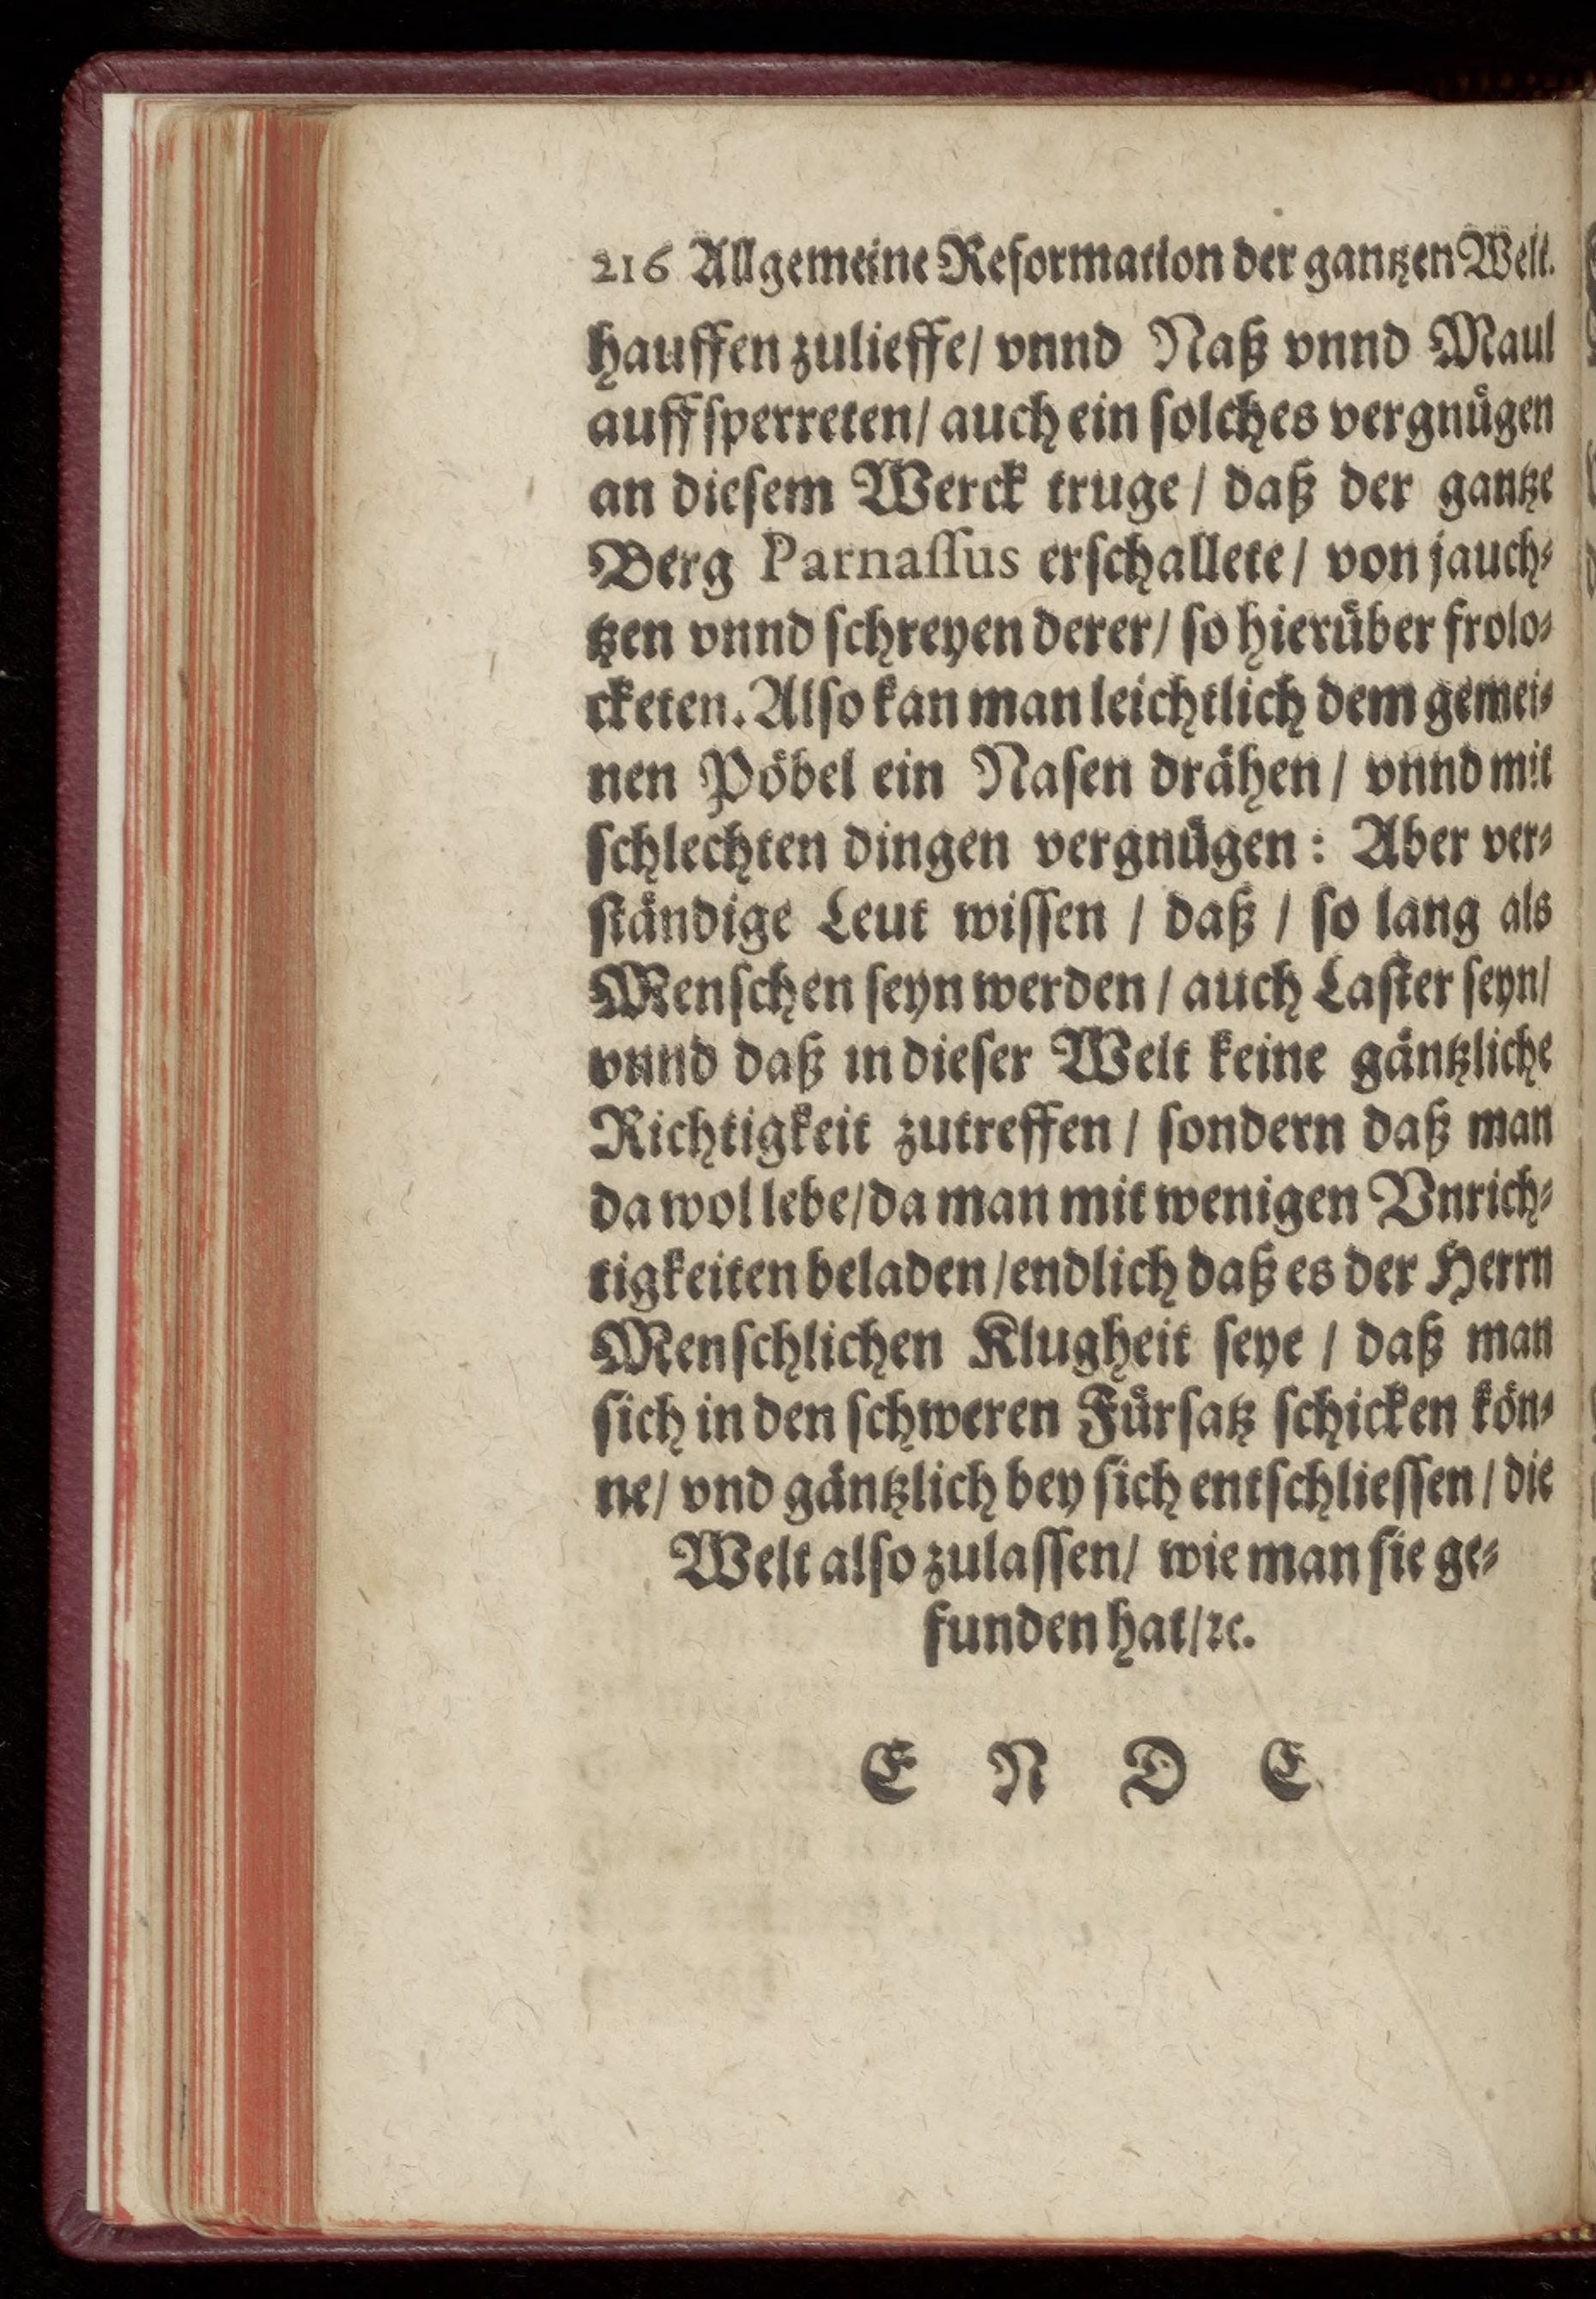 216 Allgemeine Reformation der gantzen Welt.
hauffen zulieffe/ vnnd Naß vnnd Maul
auffsperreten/ auch ein solches vergnuͤgen
an diesem Werck truge / daß der gantze
Berg Parnassus erschallete / von jauch⸗
tzen vnnd schreyen derer/ so hieruͤber frolo⸗
cketen. Also kan man leichtlich dem gemei⸗
nen Poͤbel ein Nasen draͤhen / vnnd mit
schlechten dingen vergnuͤgen : Aber ver⸗
staͤndige Leut wissen / daß / so lang als
Menschen seyn werden / auch Laster seyn/
vnnd daß in dieser Welt keine gaͤntzliche
Richtigkeit zutreffen / sondern daß man
da wol lebe/ da man mit wenigen Vnrich⸗
tigkeiten beladen /endlich daß es der Herrn
Menschlichen Klugheit seye / daß man
sich in den schweren Fuͤrsatz schicken koͤn⸗
ne/ vnd gaͤntzlich bey sich entschliessen / die
Welt also zulassen/ wie man sie ge⸗
funden hat/ꝛc.
E N D E